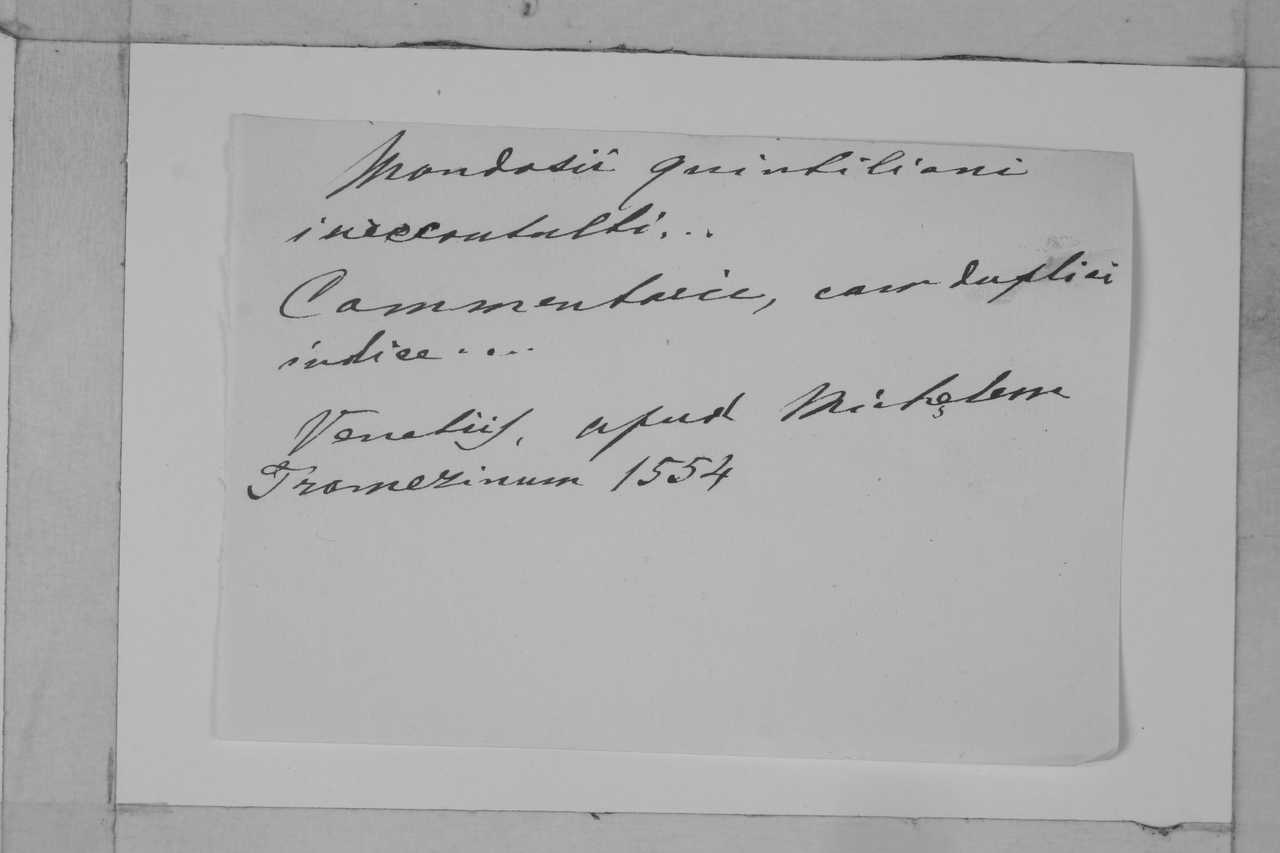 Mandosii Quintiliani
iureconsulti...
Commentarii, cum duplici
indice....
Venetiis, apud Michęlem
Tramezinum 1554